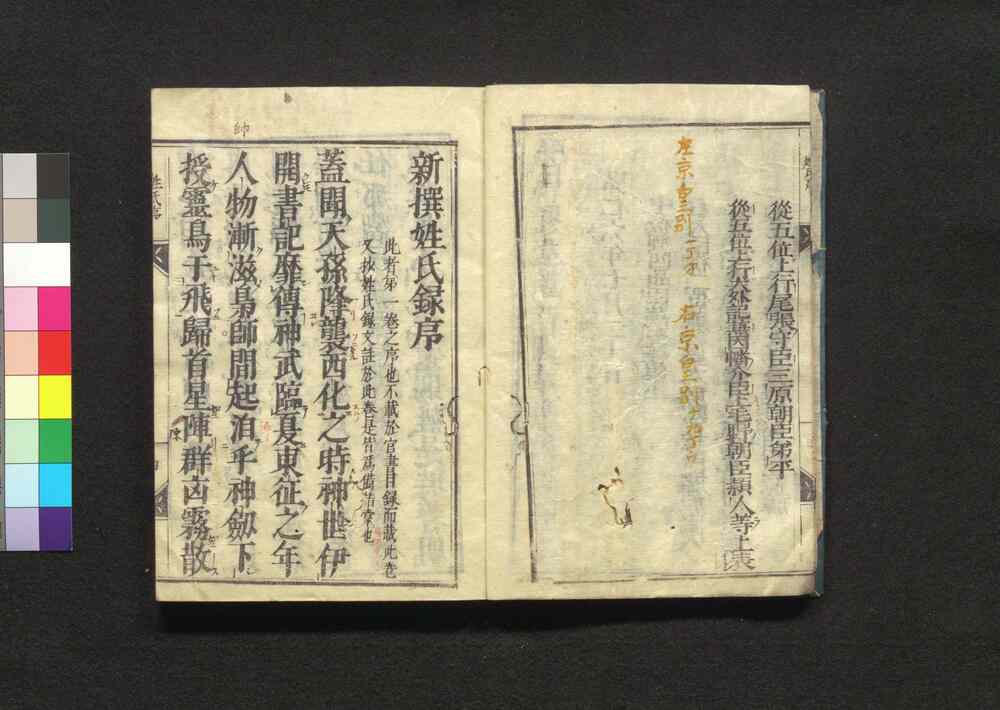 從五位上行尾張守臣三原朝臣第平
從五位上行大外記兼因幡介臣上毛野朝臣頴人等上表
左京皇別
右京皇別
新撰姓氏録序
此者第一卷之序也不載於官書目録而載此卷
又抄姓氏録文註於此卷是皆爲備指掌也
蓋聞天孫降襲西化之時神世伊
開書記靡傳神武臨夏東征之年
人物漸滋梟師間起洎乎神劔下
授靈烏于飛歸首星陣群凶霧散
帥
陳